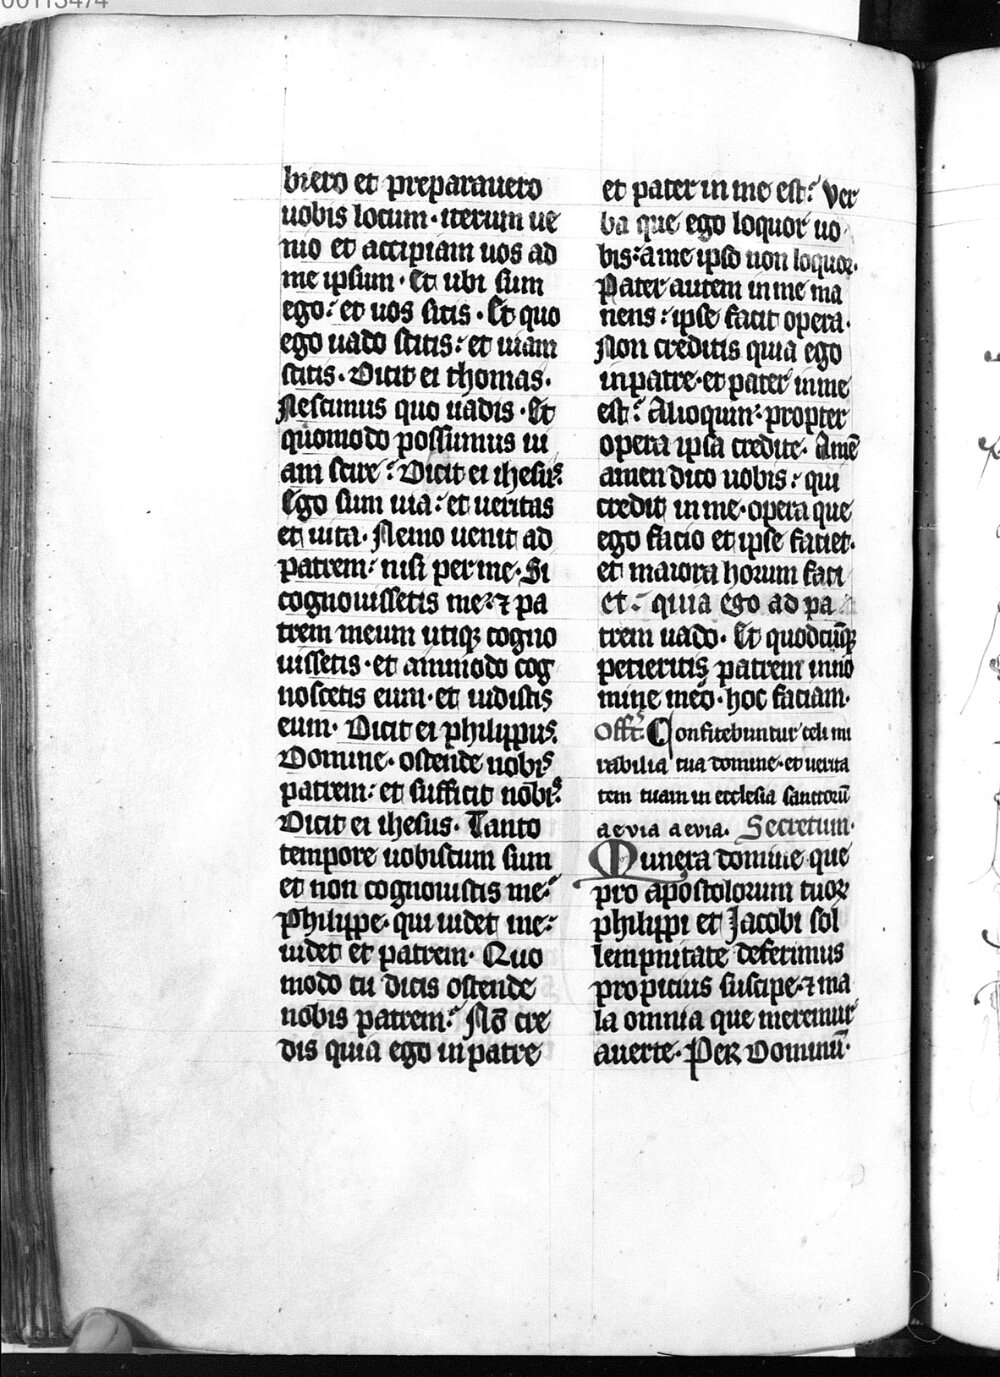 00113474
biero et preparauero
uobis locum · iterum ue
nio et accipiam uos ad
me ipsum · Et ubi sum
ego : et uos sitis · Et quo
ego uado scitis : et uiam
scitis · Dicit ei thomas ·
Nescimus quo uadis · Et
quomodo possumus ui
am scire : Dicit ei ihesus :
Ego sum uia : et ueritas
et uita · Nemo uenit ad
patrem : nisi per me · Si
cognouissetis me : ⁊ pa
trem meum utiqꝫ cogno
uissetis · et ammodo cog
noscetis eum · et uidistis
eum · Dicit ei philippus ·
Domine · ostende nobis
patrem : et sufficit nobis ·
Dicit ei ihesus · Tanto
tempore uobiscum sum
et non cognouistis me :
Philippe · qui uidet me :
uidet et patrem · Quo
modo tu dicis ostende
nobis patrem : Nō cre
dis quia ego in patre
et pater in me est : Ver
ba que ego loquor uo
bis : a me ipso non loquor ·
Pater autem in me ma
nens : ipse facit opera ·
Non creditis quia ego
in patre · et pater in me
est : Alioquin : propter
opera ipsa credite · Amē
amen dico uobis : qui
credit in me · opera que
ego facio et ipse faciet ·
et maiora horum faci
et : quia ego ad pa
trem uado · Et quodcūqꝫ
petieritis patrem in no
mine meo · hoc faciam ·
Offt. Confitebuntur celi mi
rabilia tua domine · et uerita
tem tuam in ecclesia sanctorū
aeuia aeuia . Secretum ·
Munera domine que
pro apostolorum tuoꝝ
philippi et Jacobi sol
lempnitate deferimus
propicius suscipe · ⁊ ma
la omnia que meremur
auerte · Per Dominū ·